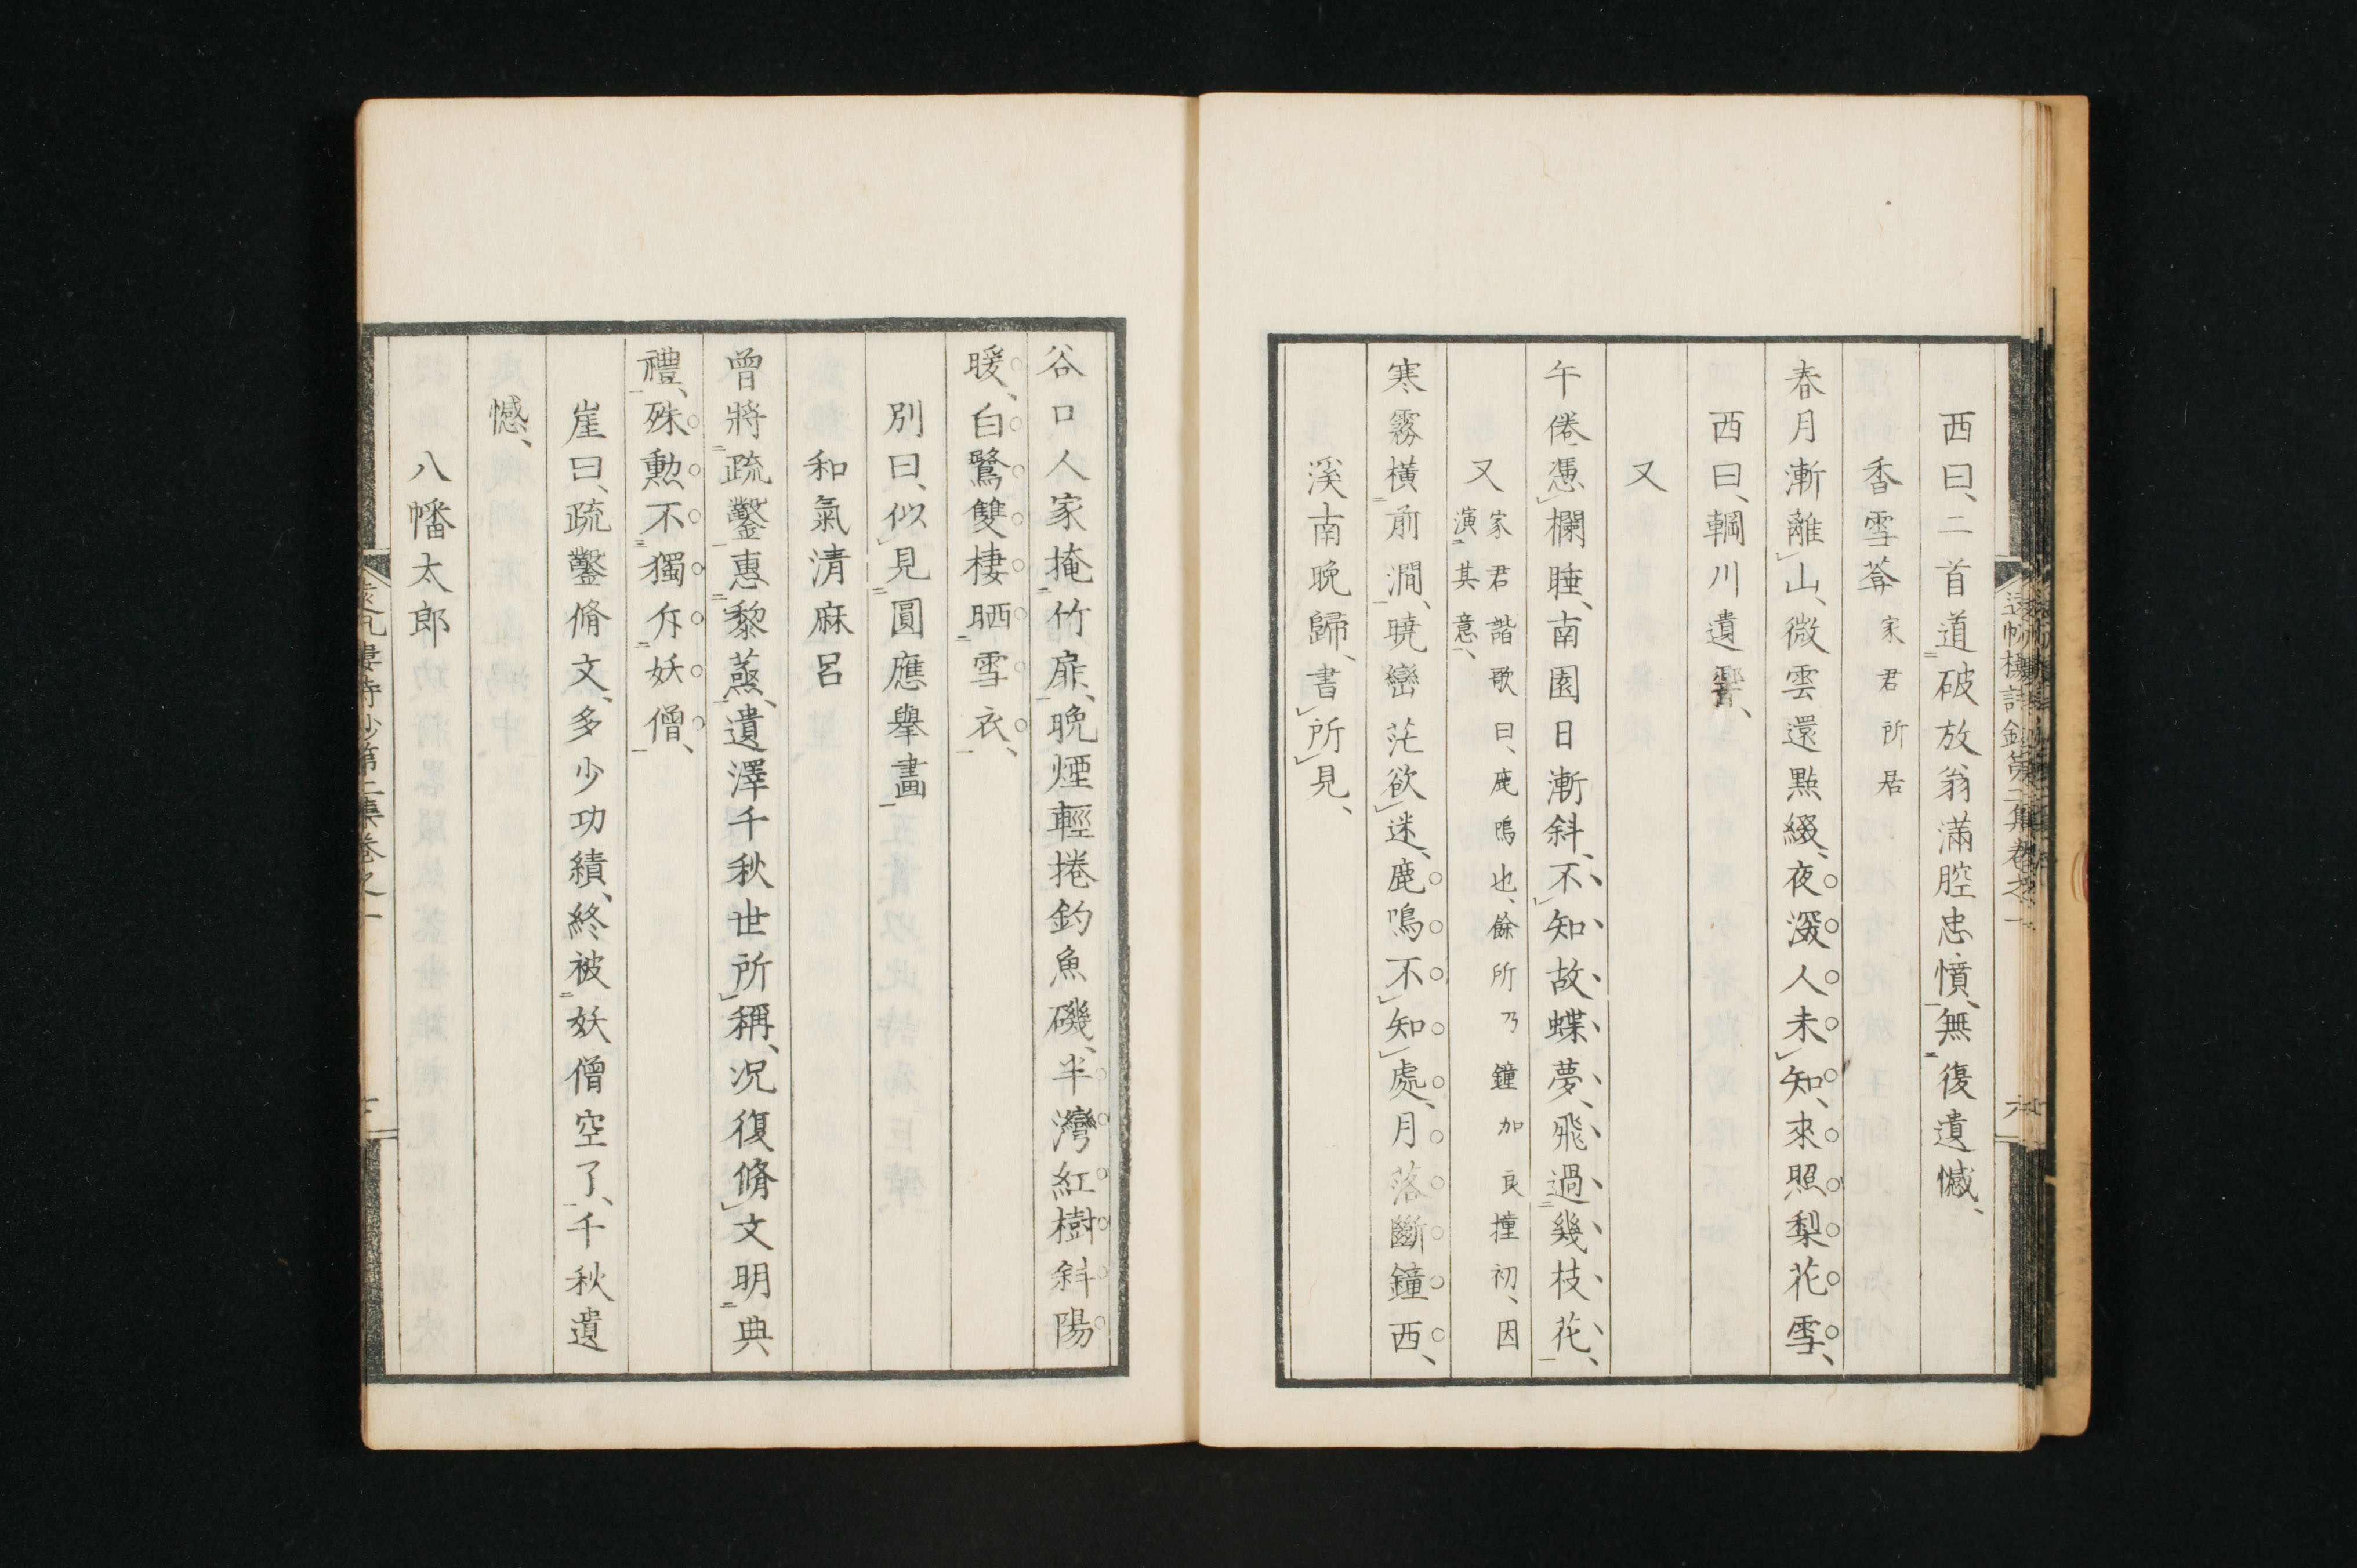 西曰、二首道破放翁滿腔忠憤、無復遺憾、
香雪葊 家君所居
春月漸離山、微雲還點綴、夜深人未知、來照梨花雪、
西曰、輞川遺響、
又
午倦憑欄睡、南園日漸斜、不知故蝶夢、飛過幾枝花、
又 家君諧歌曰、鹿鳴也、餘所乃鐘加良撞初、因
演其意、
寒霧橫前澗、曉巒茫欲迷、鹿鳴不知處、月落斷鐘西、
溪南晚歸、書所見、
谷口人家掩竹扉、晚煙輕捲釣魚磯、半灣紅樹斜陽
暖、白鷺雙棲晒雪衣、
別曰、似見圓應擧畫
和氣清麻呂
曾將疏鑿惠黎蒸、遺澤千秋世所稱、况復脩文明典
禮、殊勲不獨斥妖僧、
崖曰、疏鑿脩文、多少功績、終被妖僧空了、千秋遺
憾、
八幡太郎